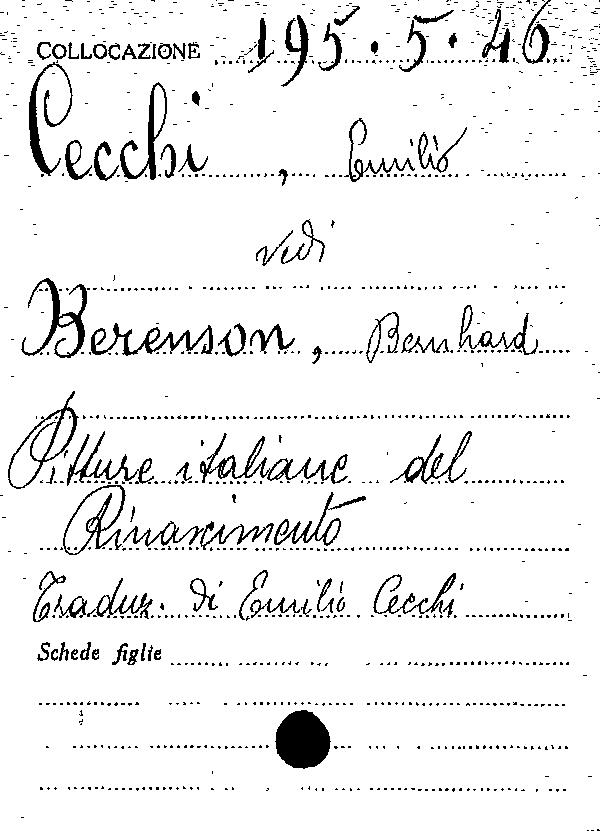 COLLOCAZIONE 195.5.46
Cecchi, Emilio
vedi
Berenson, Bernhard
Pitture italiane del
Rinascimento
Traduz. di Emilio Cecchi
Schede figlie